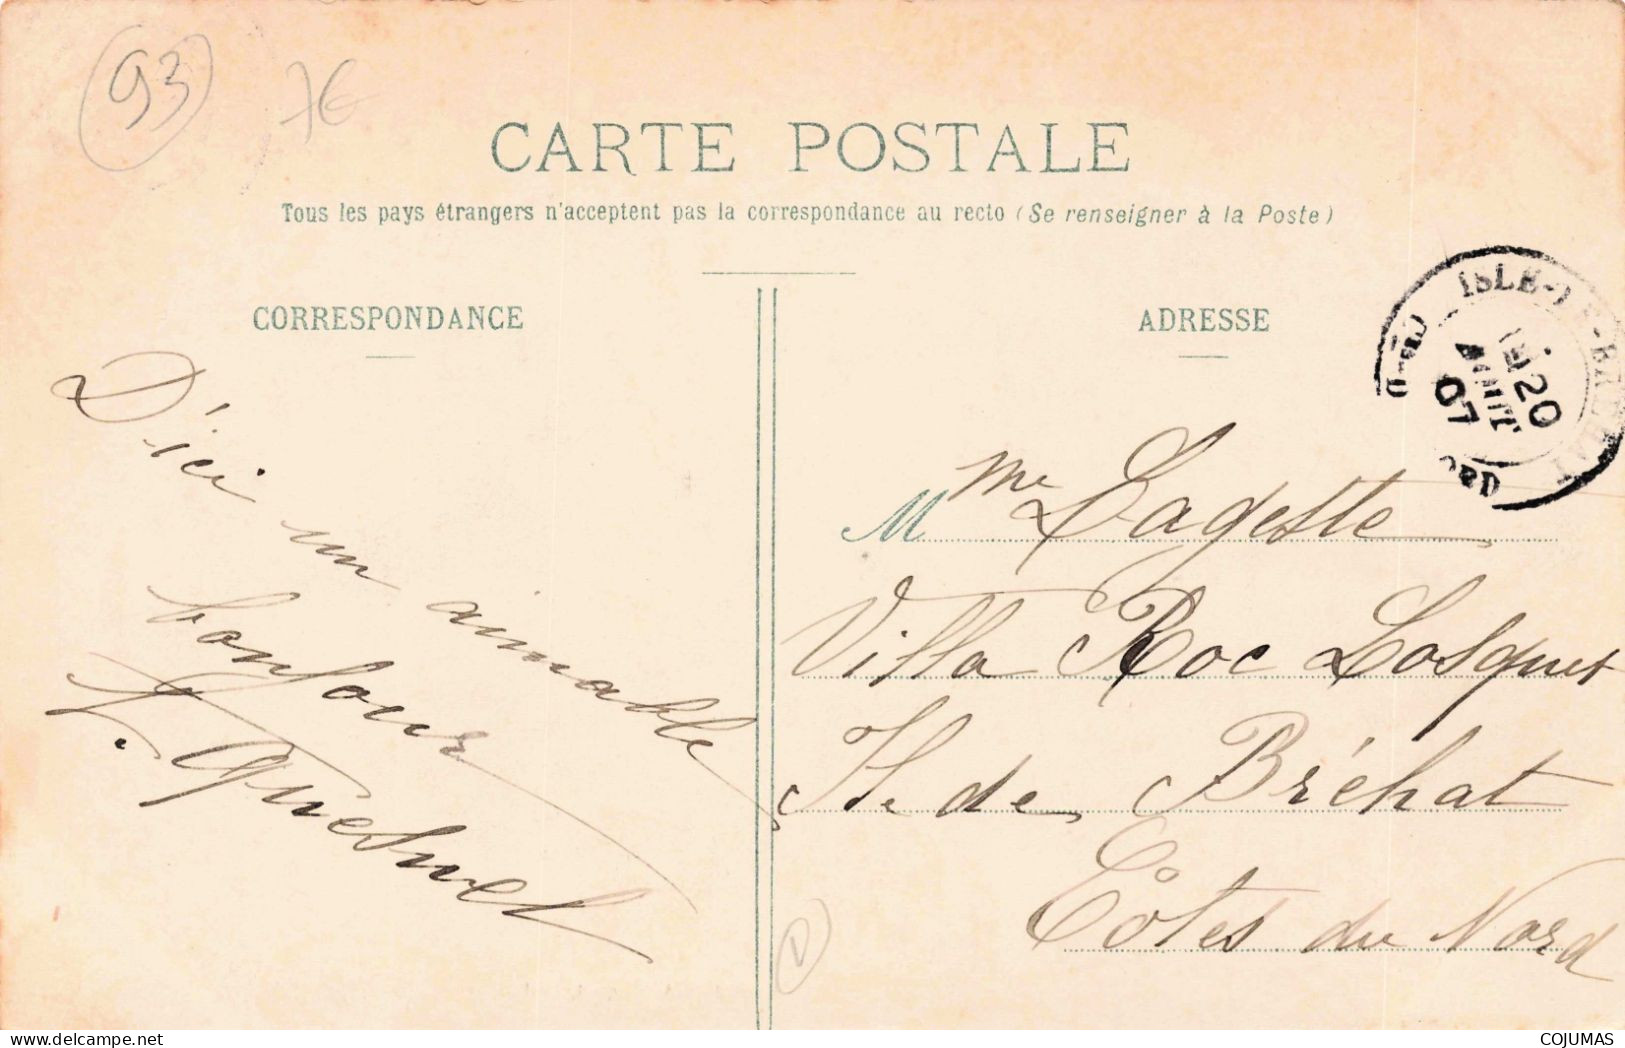 93
7€
CARTE POSTALE
Tous les pays étrangers n'acceptent pas la correspondance au recto (Se renseigner à la Poste)
CORRESPONDANCE
D'ici un aimable
bonjour
Quesnel
D
ADRESSE
ISLE-DE-BREHAT
20
AOUT
07
Mme Lagette
Villa Roc Losquet
Ile de Bréhat
Côtes du Nord
COJUMAS